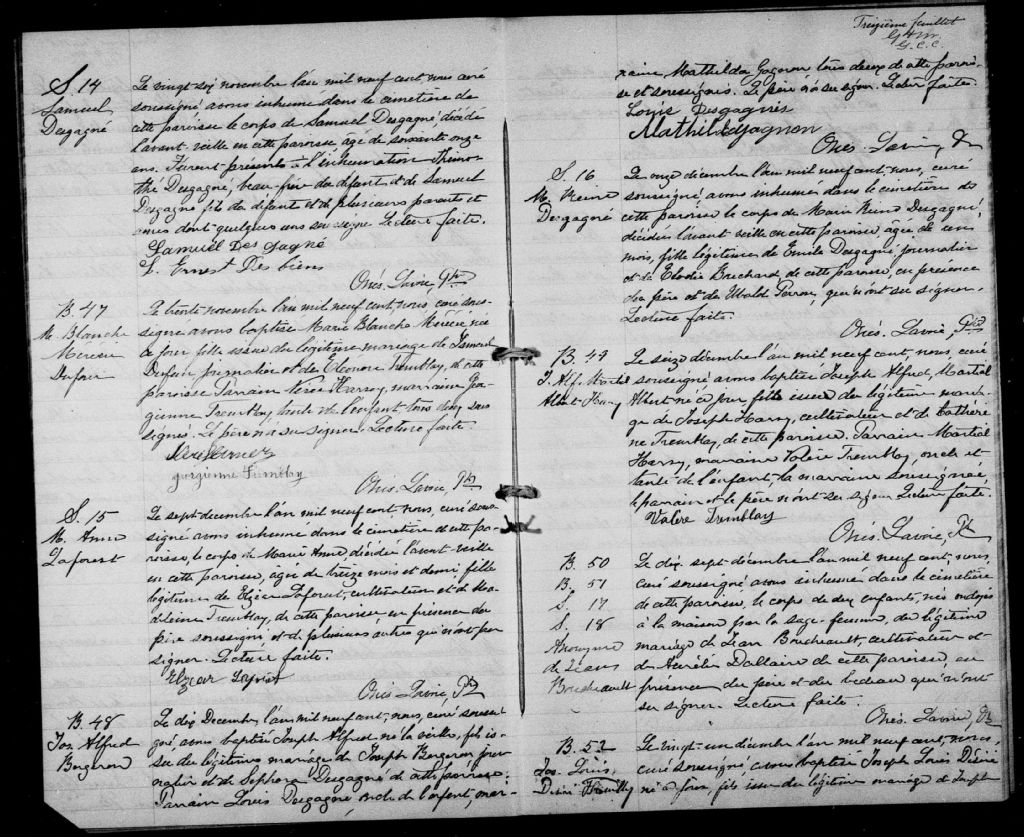 S. 14
Samuel
Desgagné
Le vingt six novembre l'an mil neuf cent nous curé
soussigné avons inhumé dans le cimetière de
cette paroisse le corps de Samuel Desgagné, décédé
l'avant-veille en cette paroisse, âgé de soixante onze
ans. Furent présents à l'inhumation Thimo-
thé Desgagné, beau-frère du défunt et de Samuel
Desgagné fils du défunt et de plusieurs parents et
amis dont quelques uns ont signé. Lecture faite.
Samuel Des gagné
L. Ernest Des biens
Onés. Lavoie, Ptre
B. 47
M. Blanche
Mercéé
Dufour
Le trente novembre l'an mil neuf cent, nous, curé sous-
signé avons baptisé Marie Blanche Mercéé née
ce jour fille issue du légitime mariage de Ismael
Dufour journalier et de Éléonore Tremblay, de cette
paroisse Parrain Néré Harvey, marraine Geor-
gienne Tremblay tante de l'enfant, tous deux sous
signés. Le père n'a su signer. Lecture faite.
gorgienne Trembley
Onés. Lavoie, Ptre
S. 15
M. Anne
Laforest
Le sept décembre l'an mil neuf cent, nous, curé sous-
signé avons inhumé dans le cimetière de cette pa-
roisse, le corps de Marie Anne, décédée l'avant-veille
en cette paroisse, âgée de treize mois et demi fille
légitime de Elzéar Laforest, cultivateur et de Ma-
deleine Tremblay, de cette paroisse, en présence du
père soussigné et de plusieurs autres qui n'ont pu
signer. Lecture faite.
Elzear Laforest
Onés. Lavoie, Ptre
B. 48
Jos. Alfred
Bergeron
Le dix Décembre l'an mil neuf cent, nous, curé soussi-
gné, avons baptisé Joseph Alfred né la veille, fils is-
su du légitime mariage de Joseph Bergeron jour-
nalier et de Sophora Desgagné de cette paroisse.
Parrain Louis Desgagné, oncle de l'enfant, mar-
Treizième feuillet
G. C. C.
raine, Mathilda Gagnon tous deux de cette parois-
se et soussignés. Le père n'a su signer. Lecture faite.
Louis Desgagnés
Mathilde gagnon
Onés. Lavoie, Ptre
S. 16
M. Reine
Desgagné
Le onze décembre l'an mil neuf cent, nous, curé
soussigné avons inhumé dans le cimetière de
cette paroisse le corps de Marie Reine Desgagné,
décédée l'avant veille en cette paroisse, âgée de un
mois, fille légitime de Emile Desgagné, journalier
et de Elodie Bouchard, de cette paroisse, en présence
du père et de Ubald Perron, qui n'ont su signer.
Lecture faite.
Onés. Lavoie, Ptre
B. 49
J. Alf. Martial
Albert Harvey
Le seize décembre l'an mil neuf cent, nous, curé
soussigné avons baptisé Joseph Alfred, Martial
Albert né ce jour fils issu du légitime maria-
ge de Joseph Harvey, cultivateur et de Cathéri-
ne Tremblay, de cette paroisse. Parrain Martial
Harvey, marraine Valère Tremblay, oncle et
tante de l'enfant, la marraine soussignée,
le parrain et le père n'ont su signer. Lecture faite.
Valere Tremblay
Onés. Lavoie, Pt
B. 50
B. 51
S. 17
S. 18
Anonyme
de Jean
Boudreault
Le dix-sept décembre l'an mil neuf cent, nous,
curé soussigné, avons inhumé dans le cimetière
de cette paroisse, le corps de deux enfants, nés ondoyés
à la maison par la sage-femme, du légitime
mariage de Jean Boudreault, cultivateur et
de Aurélie Dallaire de cette paroisse, en
présence du père et du bedeau qui n'ont
su signer. Lecture faite.
Onés. Lavoie, Pt
B. 52
Jos. Louis
Désiré Tremblay
Le vingt-un décembre l'an mil neuf cent, nous,
curé soussigné, avons baptisé Joseph Louis Désiré
né ce jour, fils issu du légitime mariage de Joseph